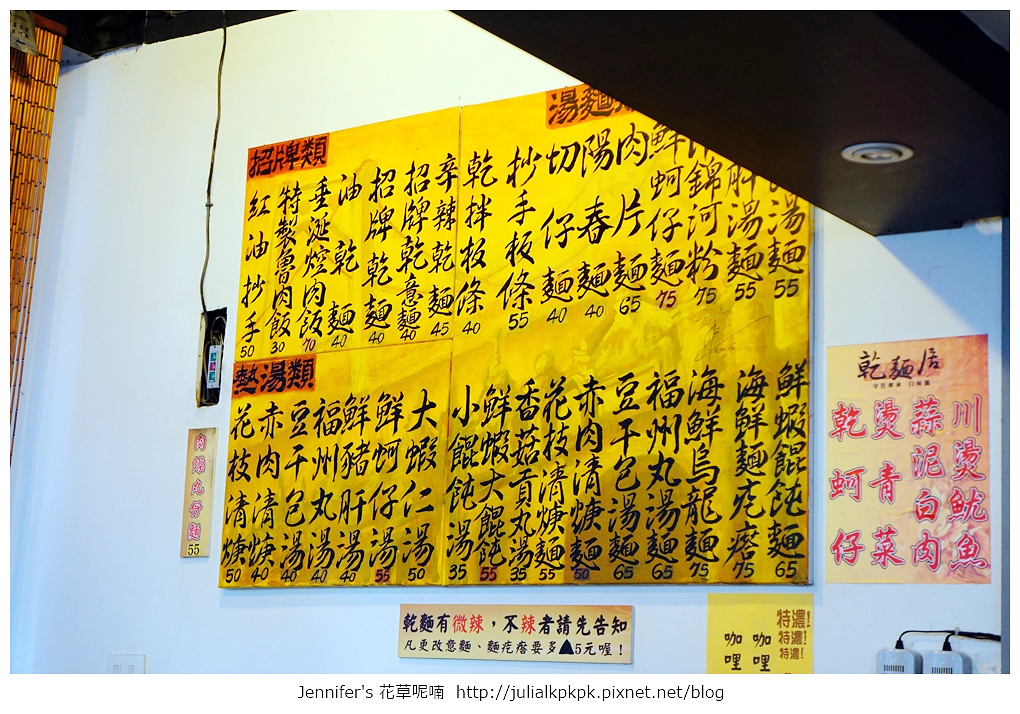 招牌類
紅油抄手 50
特製魯肉飯 30
垂涎焢肉飯 70
油乾麵 40
招牌乾麵 40
招牌乾意麵 40
辛辣乾麵 45
乾拌板條 40
抄手板條 55
湯麵
切仔麵 40
陽春麵 40
肉片麵 65
鮮蚵仔麵 75
錦河粉 75
肝湯麵 55
湯麵 55
熱湯類
花枝清焿 50
赤肉清焿 40
豆干包湯 40
福州丸湯 40
鮮豬肝湯 40
鮮蚵仔湯 55
大蝦仁湯 50
小餛飩湯 35
鮮蝦大餛飩 55
香菇貢丸湯 35
花枝清焿麵 55
赤肉清焿麵 50
豆干包湯麵 65
福州丸湯麵 65
海鮮烏龍麵 75
海鮮麵疙瘩 75
鮮蝦餛飩麵 65
肉燥丸仔麵
55
乾麵居
川燙魷魚
蒜泥白肉
燙青菜
乾蚵仔
乾麵有微辣，不辣者請先告知
凡更改意麵、麵疙瘩要多▲5元喔！
特濃!
特濃!
特濃!
咖哩
咖哩
Jennifer's 花草呢喃 http://julialkpkpk.pixnet.net/blog